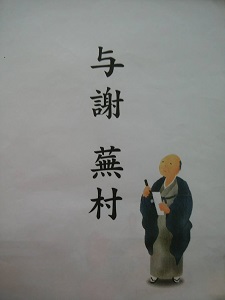 与謝 蕪村